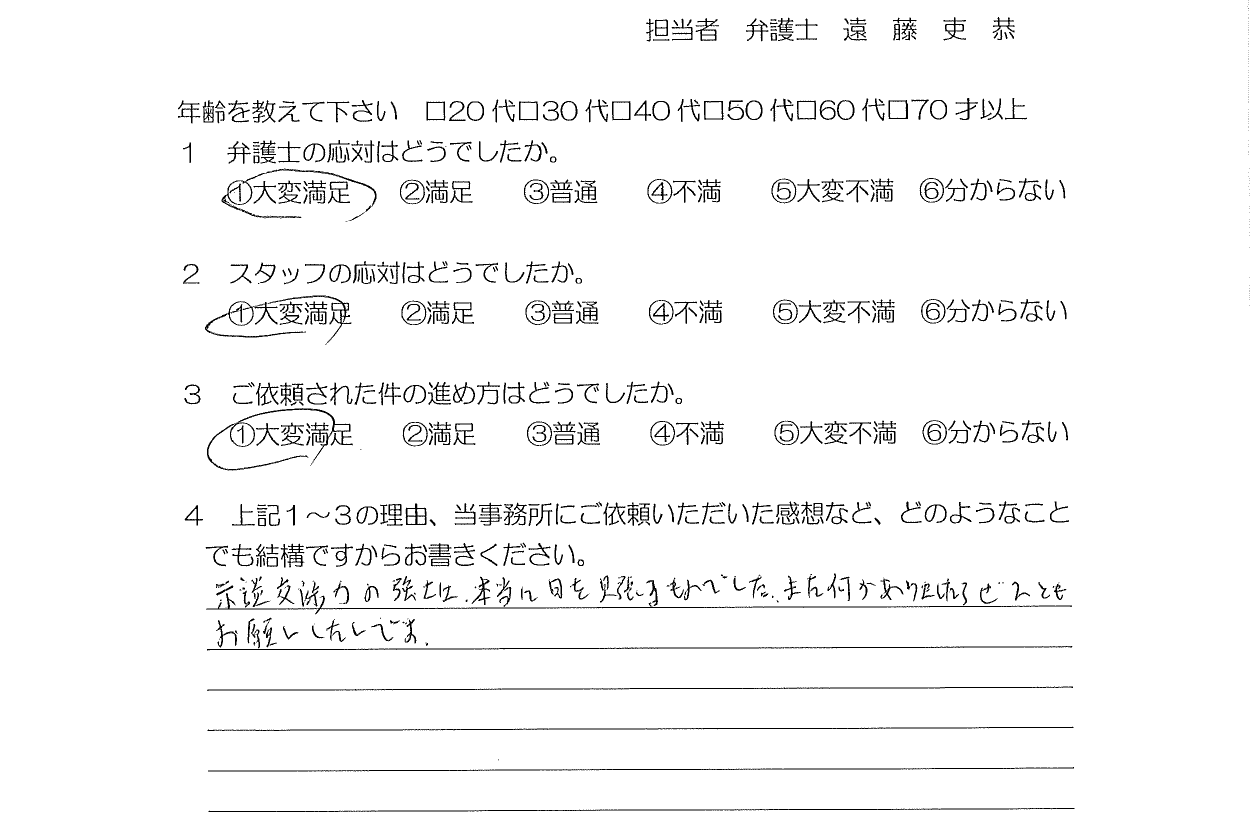 担当者　弁護士　遠　藤　吏　恭
年齢を教えて下さい　□20 代□30 代□40 代□50 代□60 代□70 才以上
１　弁護士の応対はどうでしたか。
①大変満足　②満足　③普通　④不満　⑤大変不満　⑥分からない
２　スタッフの応対はどうでしたか。
①大変満足　②満足　③普通　④不満　⑤大変不満　⑥分からない
３　ご依頼された件の進め方はどうでしたか。
①大変満足　②満足　③普通　④不満　⑤大変不満　⑥分からない
４　上記１～３の理由、当事務所にご依頼いただいた感想など、どのようなこと
でも結構ですからお書きください。
示談交渉力の強さは、本当に目を見張るものでした。また何かありましたらぜひとも
お願いしたいです。